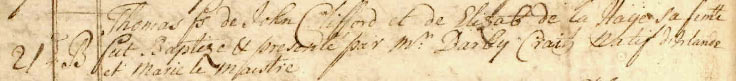 Thomas fs de John Clifford et de Elizabt de la Haye sa femme
21 B fut Baptizé & presenté par Mr Darby Craih Natif d'Irlande
et Marie le Maistre